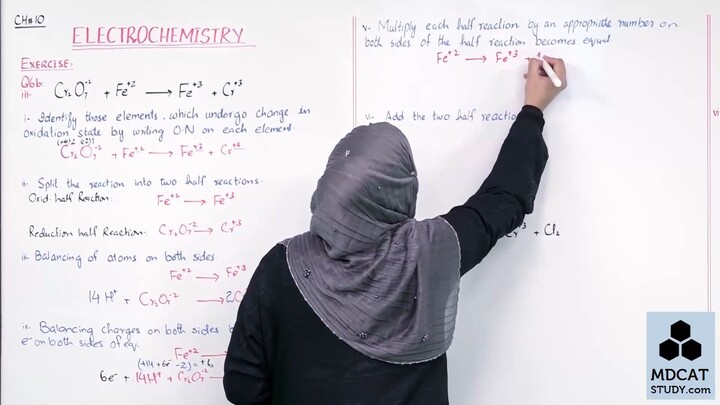 CH#10
ELECTROCHEMISTRY
EXERCISE:
Q6b:
iii- Cr₂O₇⁻² + Fe⁺² → Fe⁺³ + Cr⁺³
i- Identify those elements, which undergo change in
oxidation state by writing O.N on each element.
Cr₂O₇⁻² + Fe⁺² → Fe⁺³ + Cr
ii- Split the reaction into two half reactions.
Oxid. half Reaction: Fe⁺² → Fe⁺³
Reduction half Reaction: Cr₂O₇⁻² → Cr⁺³
iii- Balancing of atoms on both sides
Fe⁺² → Fe⁺³
14H⁺ + Cr₂O₇⁻² → 2C
iv- Balancing charges on both sides b
e⁻ on both sides of eq.
Fe⁺² →
(+14 + 6e⁻ -2) = +6
6e⁻ + 14H⁺ + Cr₂O₇⁻² →
v- Multiply each half reaction by an appropriate number on
both sides of the half reaction becomes equal.
Fe⁺² → Fe⁺³
Add the two half reactio
Cr⁺³ + Cl₂
vi
MDCAT
STUDY.com